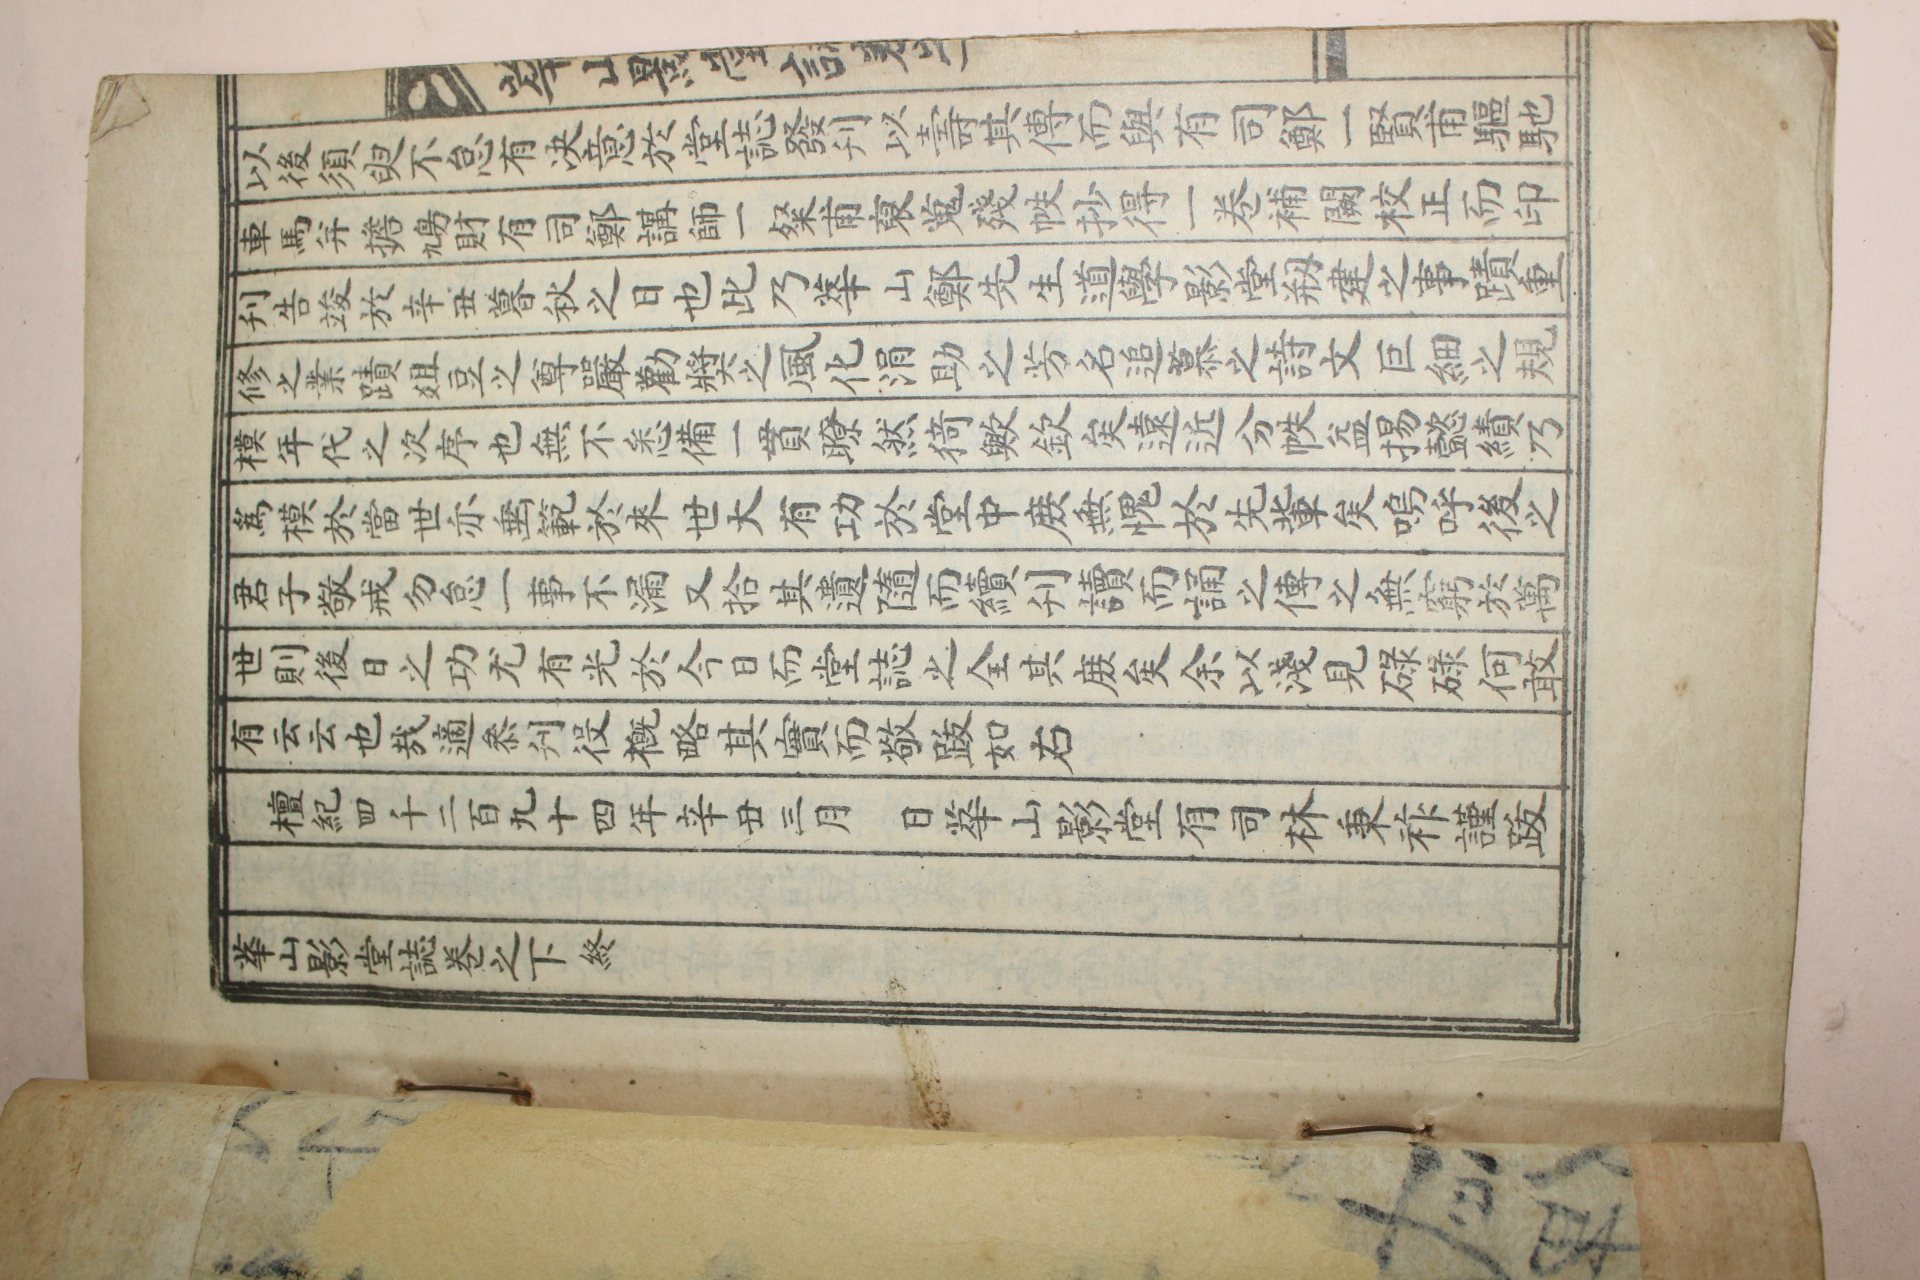 華山影堂誌卷之
以後須臾不怠有決意於堂誌發刊以壽其傳而與有司鄭一賢甫驅馳
車馬弁擔鳩財有司鄭講師一粲甫裒蒐殘帙抄得一卷補闕校正而印
刊告竣於辛丑暮秋之日也此乃華山鄭先生道學影堂刱建之事蹟重
修之業蹟俎豆之尊嚴勸奬之風化涓助之芳名追慕之詩文巨細之規
模年代之次序也無不悉備一貫瞭然猗歟欽矣遠近分帙益揚懿績乃
爲模於當世亦垂範於來世大有功於堂中庶無愧於先輩矣嗚呼後之
君子敬戒勿怠一事不漏又拾其遺隨而續刊讀而誦之傳之無窮於萬
世則後日之功尤有光於今日而堂誌之全其庶矣余以淺見碌碌何敢
有云云也哉適叅刋役槪略其實而敬跋如右
檀紀四千二百九十四年辛丑三月 日華山影堂有司林秉祚謹跋
華山影堂誌卷之下 終